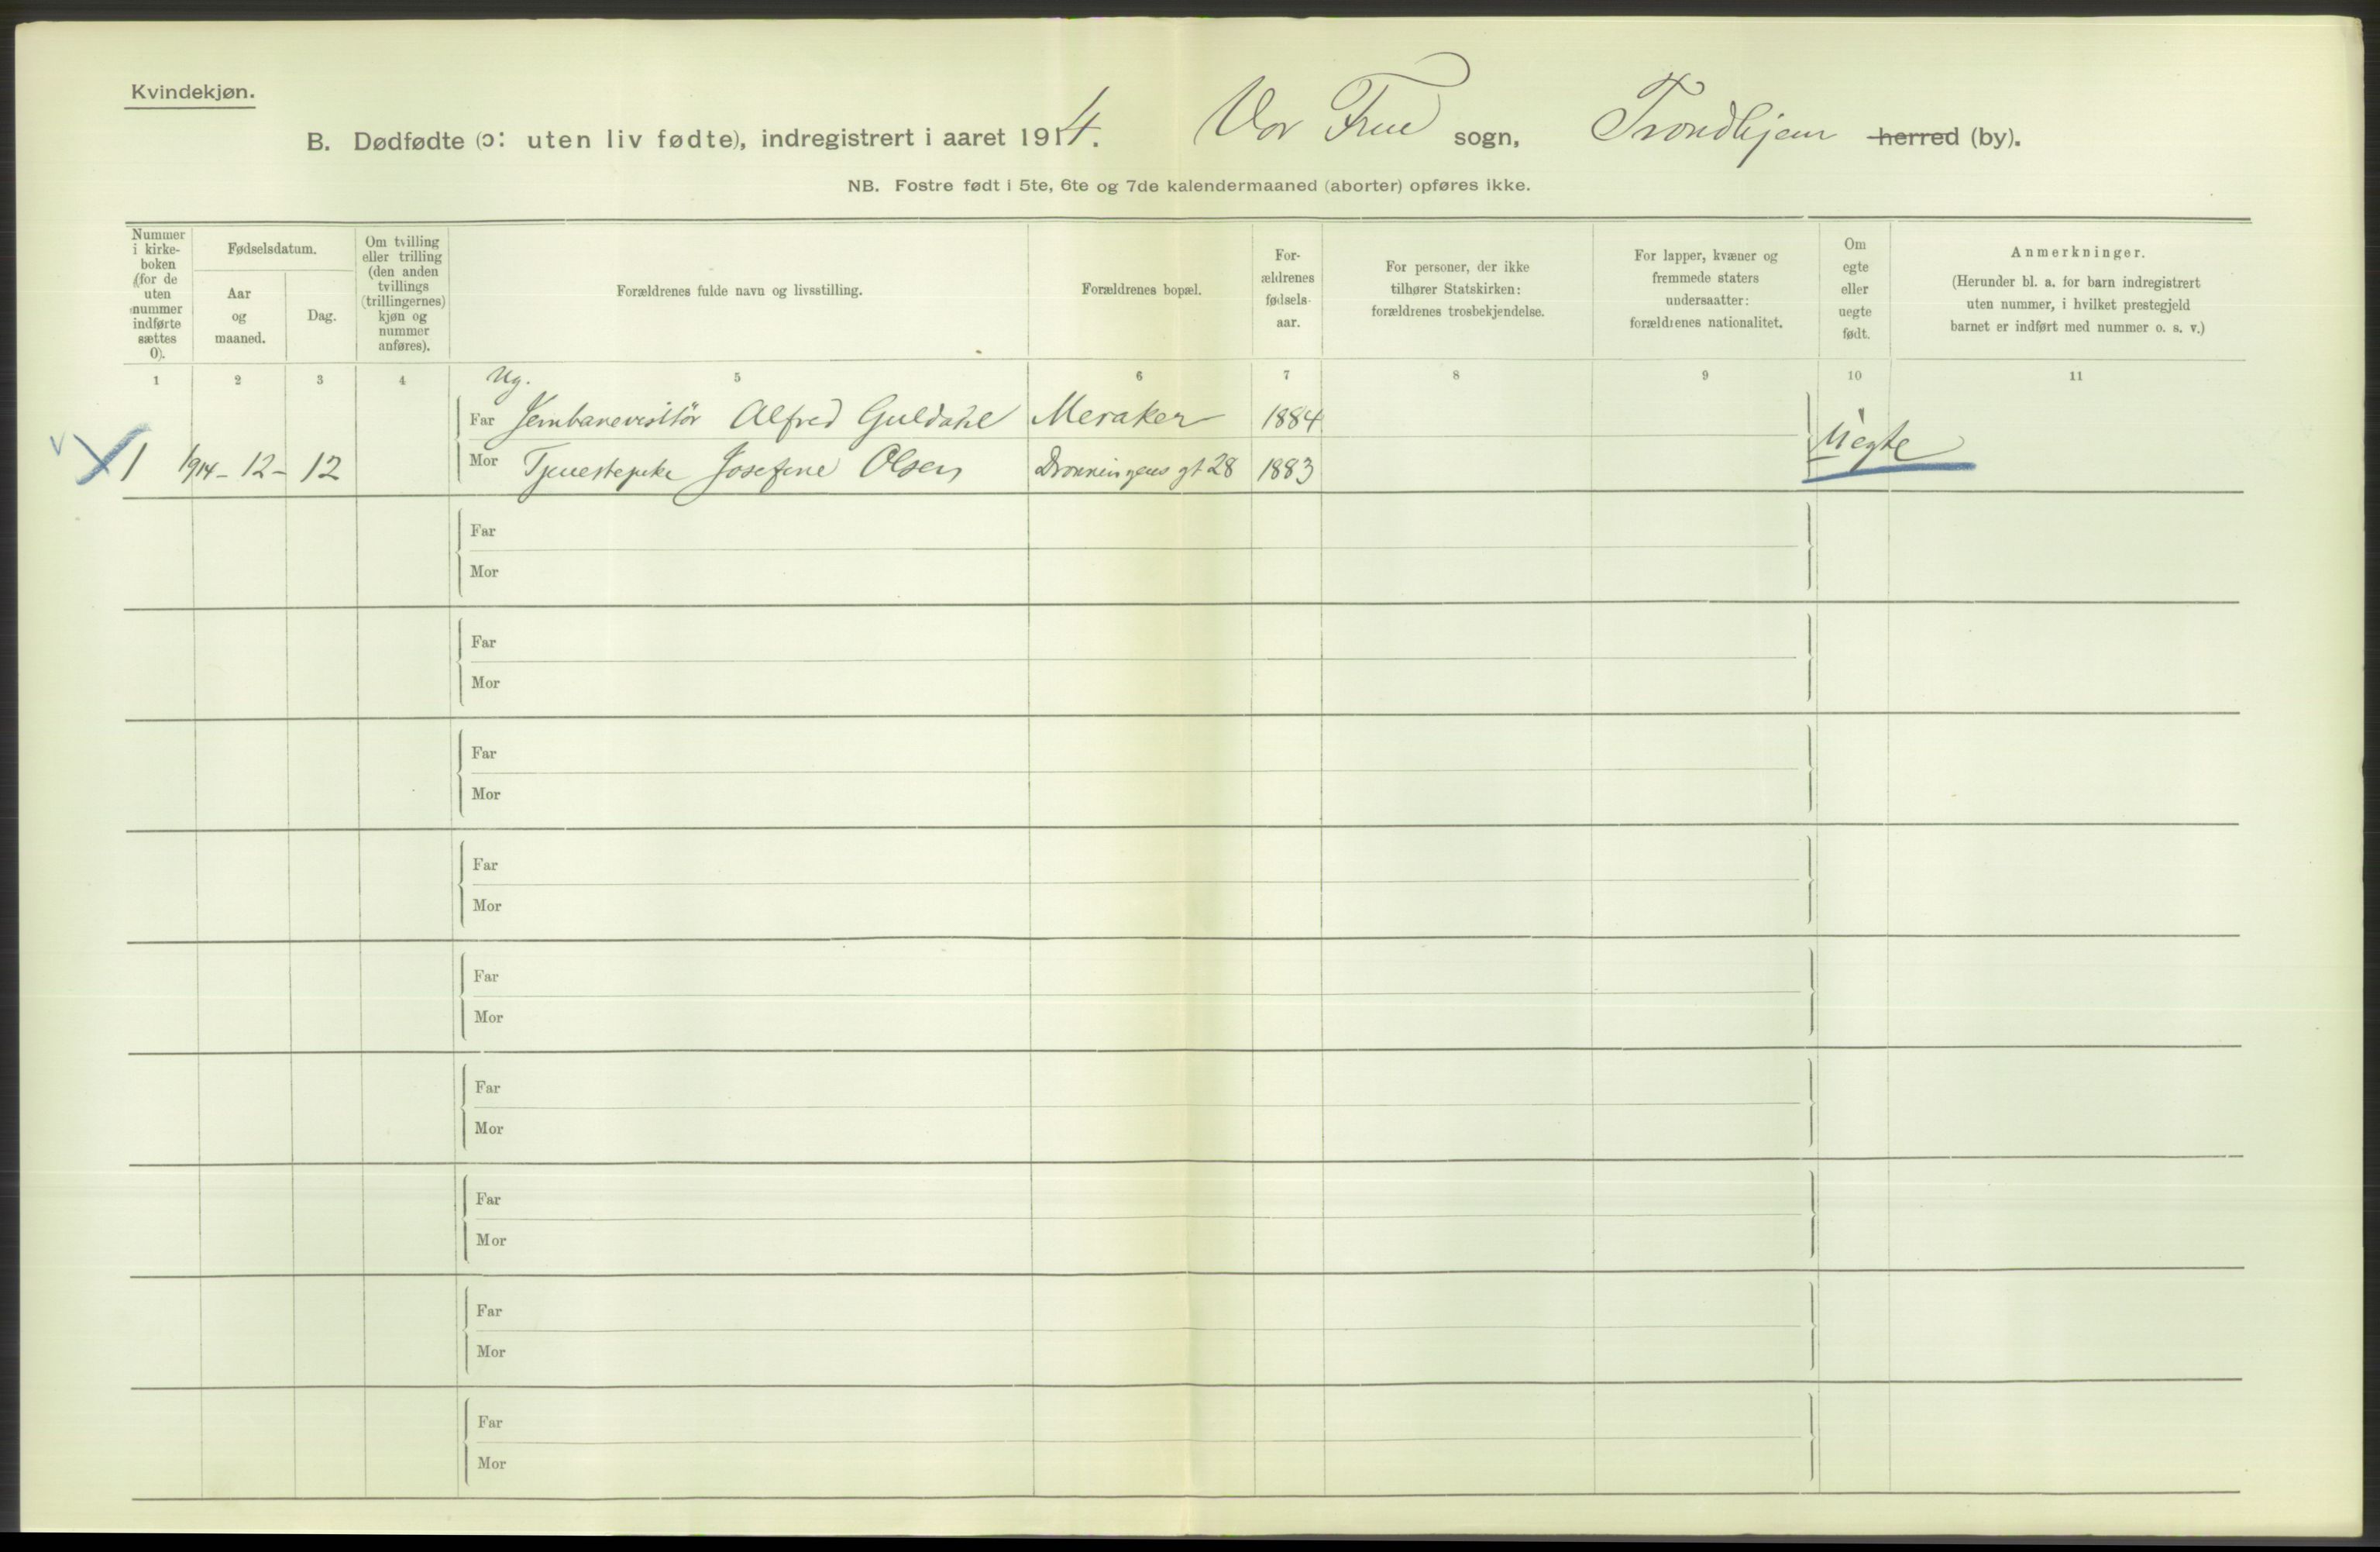 Kvindekjøn.
B. Dødfødte (ɔ: uten liv fødte), indregistrert i aaret 1914. Vor Frue sogn, Trondhjem herred (by).
NB. Fostre født i 5te, 6te og 7de kalendermaaned (aborter) opføres ikke.
Nummer i kirke-boken (for de uten nummer indførte sættes 0).
Fødselsdatum.
Aar og maaned.
Dag.
Om tvilling eller trilling (den anden tvillings (trillingernes) kjøn og nummer anføres).
Forældrenes fulde navn og livsstilling.
Forældrenes bopæl.
For-ældrenes fødsels-aar.
For personer, der ikke tilhører Statskirken: forældrenes trosbekjendelse.
For lapper, kvæner og fremmede staters undersaatter: forældrenes nationalitet.
Om egte eller uegte født.
Anmerkninger.
(Herunder bl. a. for barn indregistrert uten nummer, i hvilket prestegjeld barnet er indført med nummer o. s. v.)
1 2 3 4 5 6 7 8 9 10 11
Ug.
Far Jernbanevisitör Alfred Guldahl Meraker 1884
1 1914-12- 12 Mor Tjenestepike Josefine Olsen Dronningens gt 28 1883 Uegte
Far
Mor
Far
Mor
Far
Mor
Far
Mor
Far
Mor
Far
Mor
Far
Mor
Far
Mor
Far
Mor